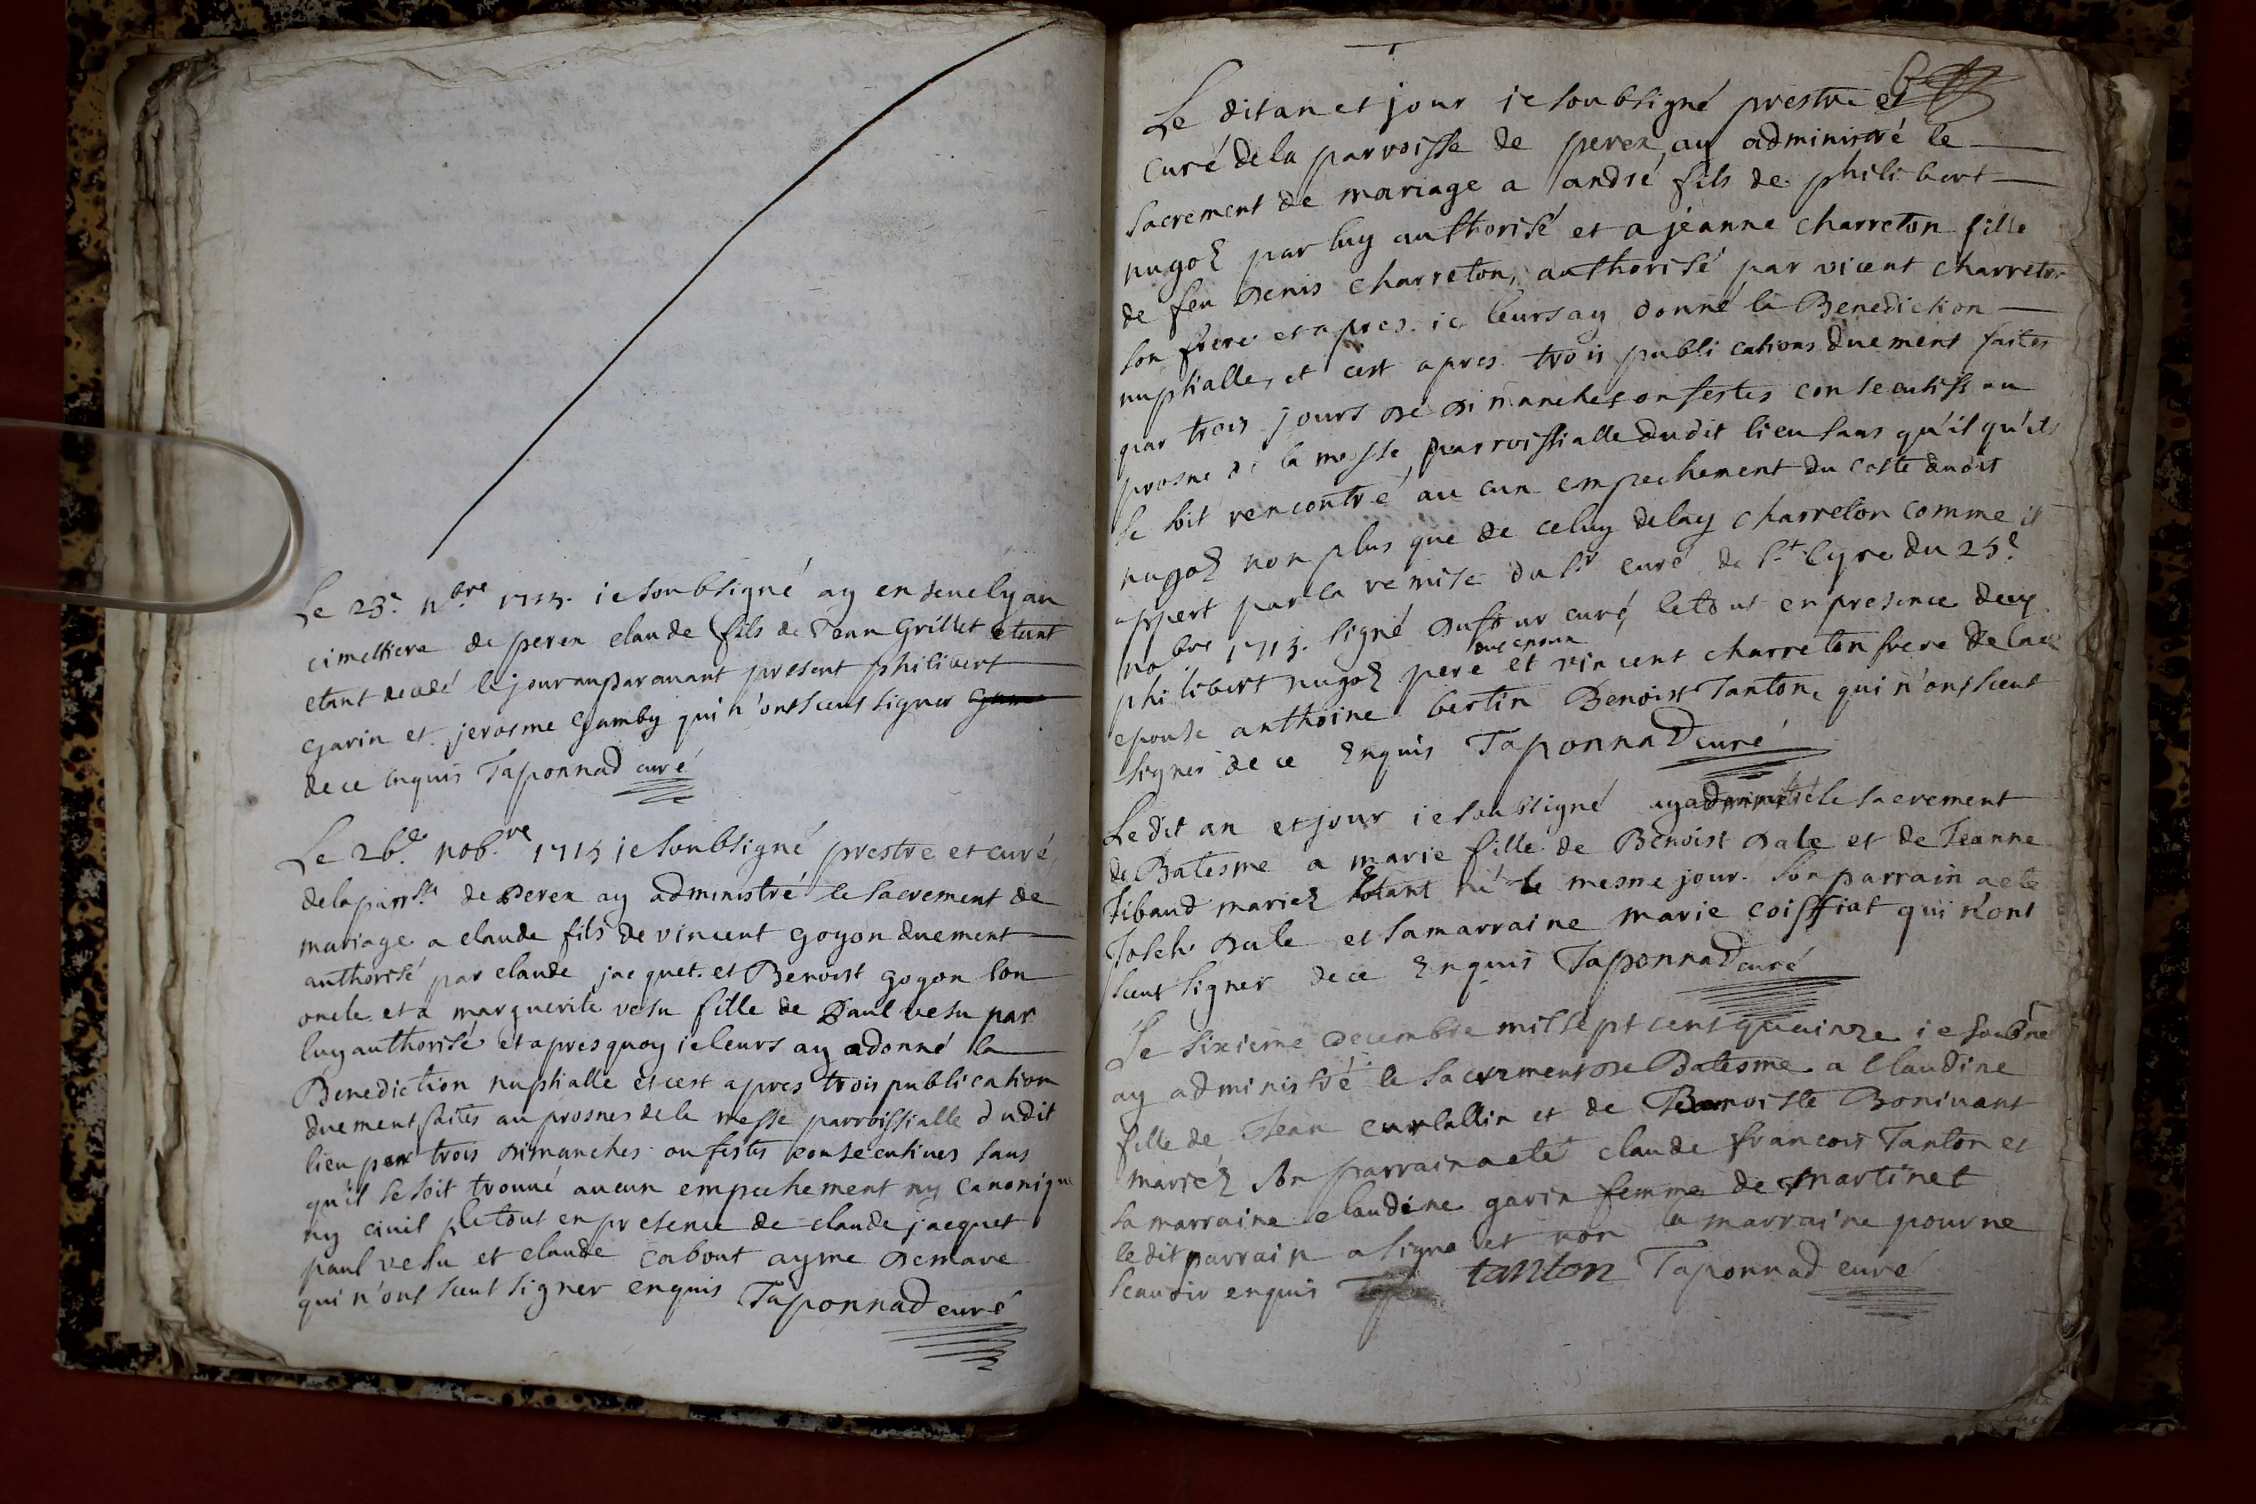 Le 23e. nbre 1715. ie soubsigné ay enseuely au
cimettiere de perex claude fils de Jean Grillet etant
etant decedé le jour auparauant present philibert
Garin et jerosme Gamby qui n'ont sceut signer
de ce enquis Taponnad curé
Le 26e. nob.re 1715 ie soubsigné prestre et curé
de la parrsse de Perex ay administré le sacrement de
mariage a claude fils de vincent Goyon duement
authorisé par claude jacquet et Benoist goyon son
oncle et a marguerite vesu fille de Paul vesu par
luy authorisé et apres quoy ie leurs ay adonné la
Benediction nuptialle et cest apres trois publication
duement faites au prosnes de la messe parroissialle dudit
lieu par trois dimanches ou festes consecutiues sans
qu'il se soit trouué aucun empechement ny canonique
ny ciuil le tout en presence de claude jacquet
paul vesu et claude cabout ayme Demare
qui n'ont sceut signer enquis Taponnad curé
Le dit an et jour ie soubsigné prestre et
curé de la parroisse de perex ay administré le
sacrement de mariage a andré fils de philibert
nugoz par luy authorisé et a jeanne charreton fille
de feu Denis charreton, authorisé par vicent charreton
son frere et apres ie leurs ay donné la Benediction
nuptialle, et cest apres trois publications duement faites
par trois jours de dimanches ou festes consecutifs au
prosne de la messe parroissialle dudit lieu sans qu'il qu'ils
se soit rencontré aucun empechement du costé dudit
nugoz non plus que de celuy de lay charreton comme il
appert par la remise du sr curé de st. Cyre du 25e
nobre 1715. signé Dufour curé, le tout en presence de
philibert nugoz pere et vincent charreton frere de la
epouse anthoine bertin Benoist Tanton, qui n'ont sceut
signer de ce Enquis Taponnad curé
Le dit an et jour ie soubsigné ay administré le sacrement
de Batesme a marie fille de Benoist Dale et de Jeanne
Tibaud mariez etant né le mesme jour. Son parrain a eté
Joseh Dale et sa marraine marie coiffiat qui n'ont
sceut signer de ce Enquis Taponnad curé
Le sixieme Decembre mil sept cent quainze ie soubné
ay administré le sacrement de Batesme a Claudine
fille de Jean curtallin et de Benoiste Boniuant
mariez son parrain a eté claude francois Tanton et
sa marraine claudine garin femme de Martinet
le dit parrain a signe et non la marraine pour ne
scauoir enquis tanton Taponnad curé